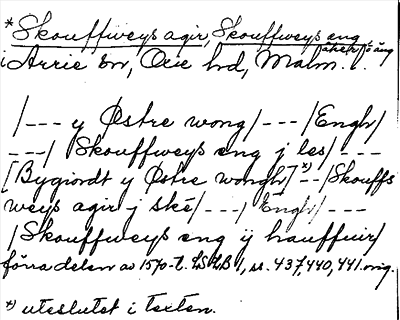 *Skouffweys agir, Skouffweys eng,
åker o äng
i Arrie sn, Oxie hd, Malm. l.
/--- y Østre wong/---/Engh/
---/ Skouffweys eng j les/----
[Bygiordt y Østre wongh]*)--/Skouffs
weys agir j ské/---/Engh/---
/Skouffweys eng ij hauffuir/
förra delen av 1570-t. LSLB 1, ss. 437,440,441 orig.
*) uteslutet i texten.